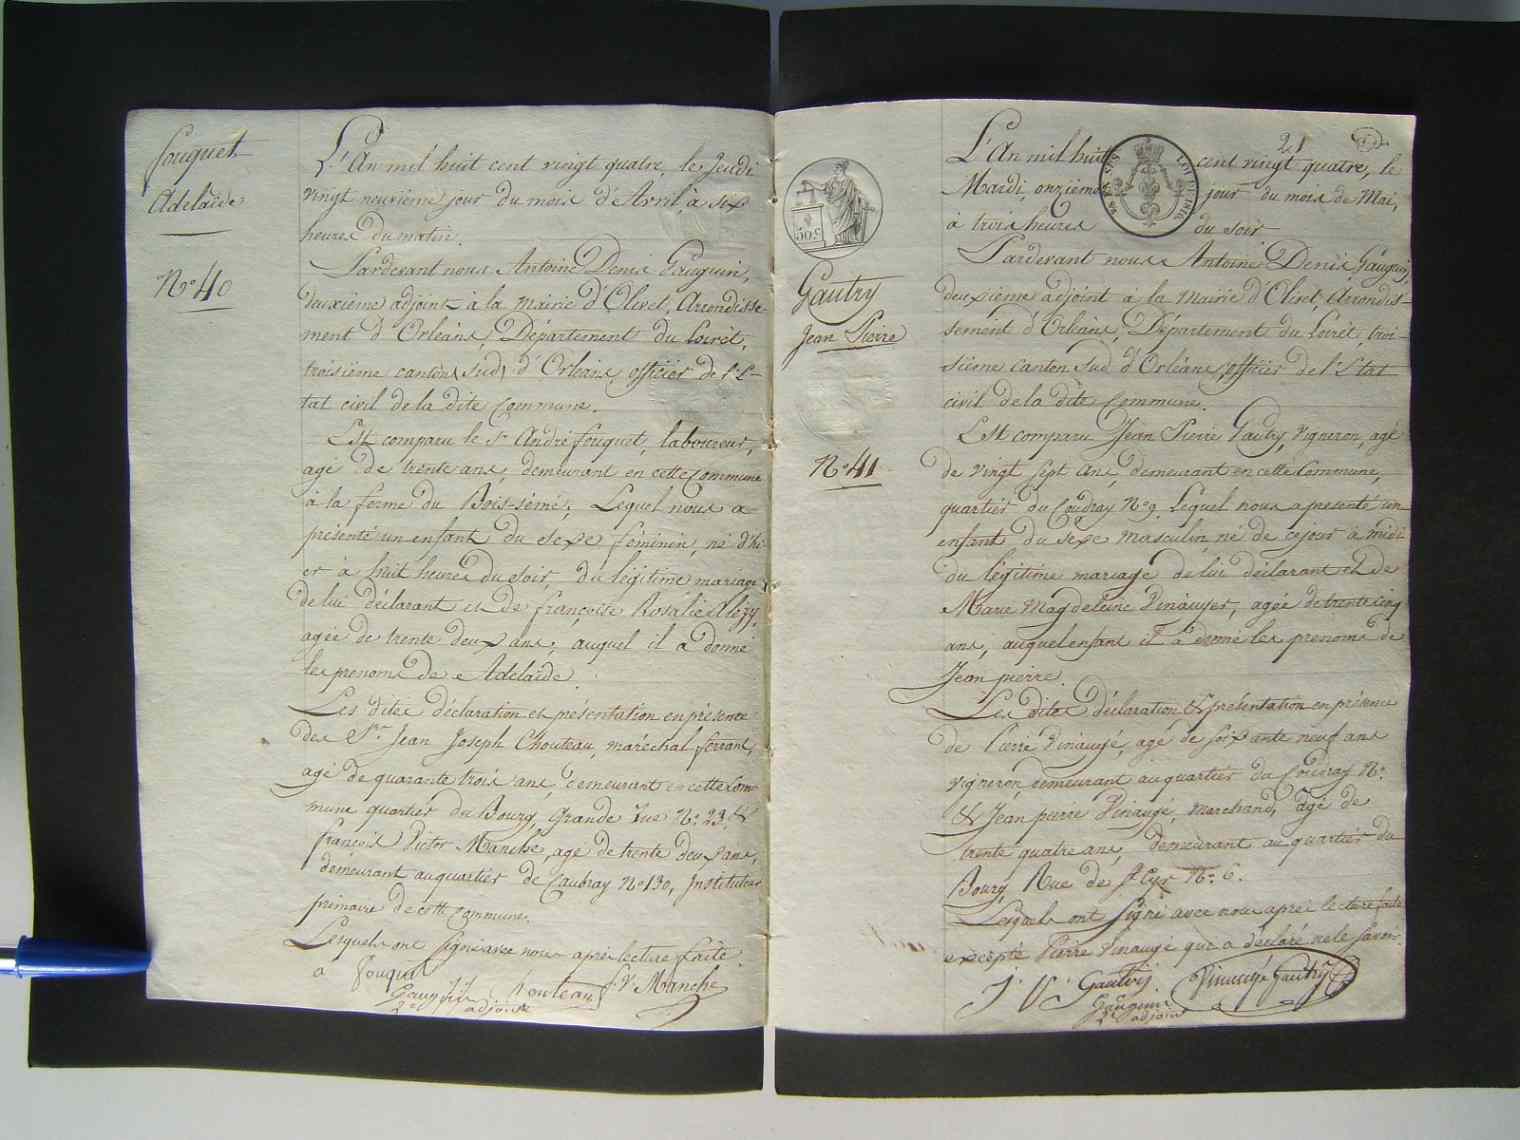 fouquet
Adelaïde
N.º 40
L'An mil huit cent vingt quatre, le Jeudi
vingt neuvième jour du mois d'Avril, à six
heures du matin.
Pardevant nous Antoine Denis Gauguin,
deuxième adjoint à la mairie d'Olivet, Arrondisse-
ment d'Orléans, Département du Loiret,
troisième canton (sud) d'Orléans, officier de l'E-
tat civil de la dite Commune.
Est comparu le Sr. André fouquet, laboureur,
agé de trente ans, demeurant en cette commune
à la ferme du Bois-semé; Lequel nous a
présenté un enfant du sexe féminin, né d'hi-
er à huit heures du soir, du légitime mariage
de lui déclarant et de françoise Rosalie
agée de trente deux ans; auquel il a donné
les prenoms de Adelaïde.
Les dites déclaration et présentation en présence
des Srs. Jean Joseph Chouteau, maréchal ferrant,
agé de quarante trois ans, demeurant en cette Com-
mune quartier du Bourg, Grande Rue N.º 23. &
françois Victor Manche, agé de trente deux ans,
demeurant au quartier de Caubray N.º 130, Instituteur
primaire de cette Commune.
Lesquels ont signé avec nous après lecture faite.
a fouquet
Chouteau f. V. Manche
Gauguin
2e adjoint
21
50 C
LOI DE 1816
Gautry
Jean Pierre
N.º 41
L'An mil huit cent vingt quatre, le
Mardi, onzième jour du mois de Mai,
à trois heures du soir
Pardevant nous Antoine Denis Gauguin,
deuxième adjoint à la mairie d'Olivet, Arrondis-
sement d'Orléans, Département du Loiret, troi-
sième canton sud d'Orléans, officier de l'Etat
civil de la dite Commune.
Est comparu Jean Pierre Gautry, vigneron, agé
de vingt sept ans, demeurant en cette Commune,
quartier du Coudray N.º 9. Lequel nous a presenté un
enfant du sexe masculin, né de ce jour à midi
du légitime mariage de lui déclarant et de
Marie Magdeleine Pinauger, agée de trente cinq
ans, auquel enfant il a donné les prenoms de
Jean pierre.
Les dites déclaration & présentation en présence
de Pierre Pinaugé, agé de soixante neuf ans
vigneron, demeurant au quartier du Coudray N.º
& Jean pierre Pinaugé, marchand, agé de
trente quatre ans, demeurant au quartier du
Bourg, Rue de St. Cyr N.º 6.
Lesquels ont signé avec nous après lecture faite
excepté Pierre Pinaugé que a déclaré ne le savoir.
Gautry. Pinaugé Gautry
Gauguin
2e adjoint